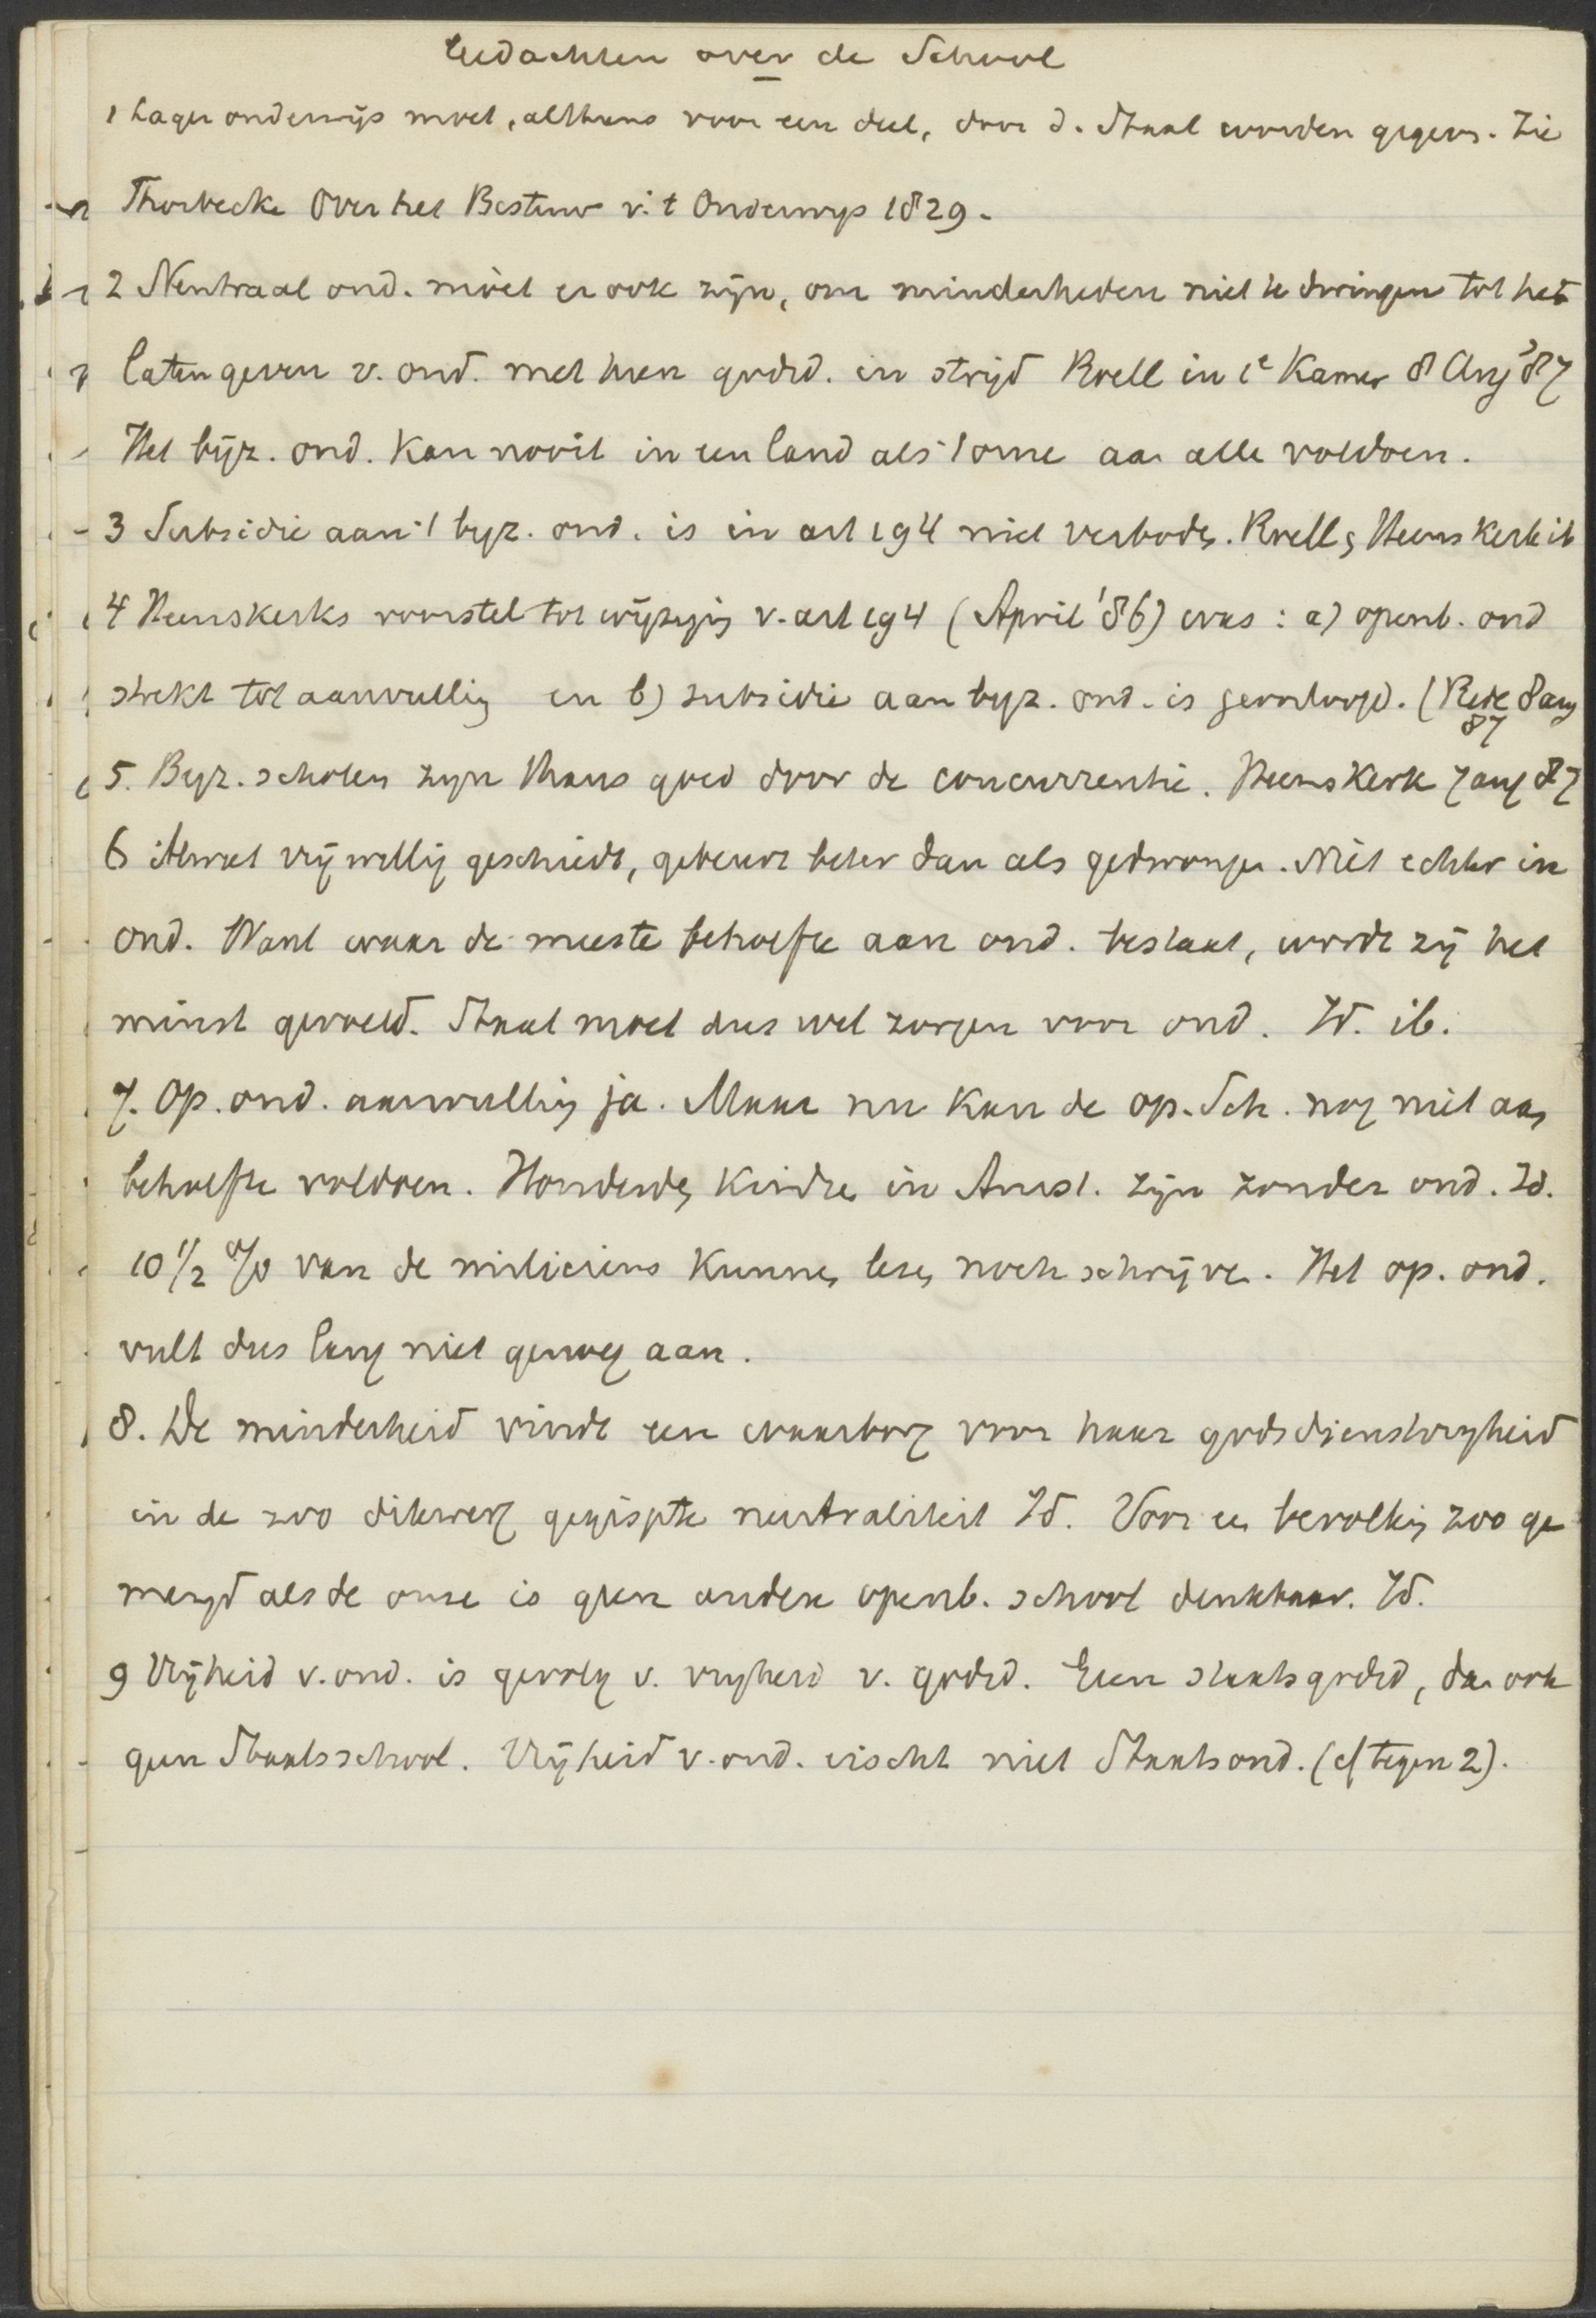 Gedachten over de School
1 Lager onderwijs moet, althans voor een deel, door d. Staat worden gegeven. Zie
Thorbecke Over het Bestuur v. 't Onderwijs 1829.
2 Neutraal ond. moet er ook zijn, om minderheden niet te dwingen tot het
laten geven v. ond. met hun godsd. in strijd Roell in 1e Kamer 8 Aug '87
Het bijz. ond. kan nooit in een land als 't onze aan alle voldoen.
3 Subsidie aan 't byz. ond. is in art 194 niet verboden. Roell, Heemskerk ib
4 Heemskerks voorstel tot wijziging v. art 194 (April '86) was: a) openb. ond
strekt tot aanvulling en b) subsidie aan byz. ond. is geoorloofd. (Rede 8 aug 87
5. Byz. scholen zyn thans goed door de concurrentie. Heemskerk 7 aug 87
6 Alwat vrijwillig geschiedt, gebeurt beter dan als gedwongen. Niet echter in
ond. Want waar de meeste behoefte aan ond. bestaat, wordt zij het
minst gevoeld. Staat moet dus wel zorgen voor ond. Id. ib.
7. Op. ond. aanvulling ja. Maar nu kan de op. Sch. nog niet aan
behoefte voldoen. Honderden kindren in Amst. zijn zonder ond. Id.
10 1/2 % van de miliciens kunnen lezen noch schrijven. Het op. ond.
vult dus lang niet genoeg aan.
8. De minderheid vindt een waarborg voor haar godsdienstvryheid
in de zoo dikwerf gegispte neutraliteit Id. Voor een bevolking zoo ge
mengd als de onze is geen andere openb. school denkbaar. Id.
9 Vrijheid v. ond. is gevolg v. vryheid v. godsd. Geen staatsgodsd, dan ook
geen Staatsschool. Vrijheid v. ond. eischt niet Staatsond. (cf tegen 2).